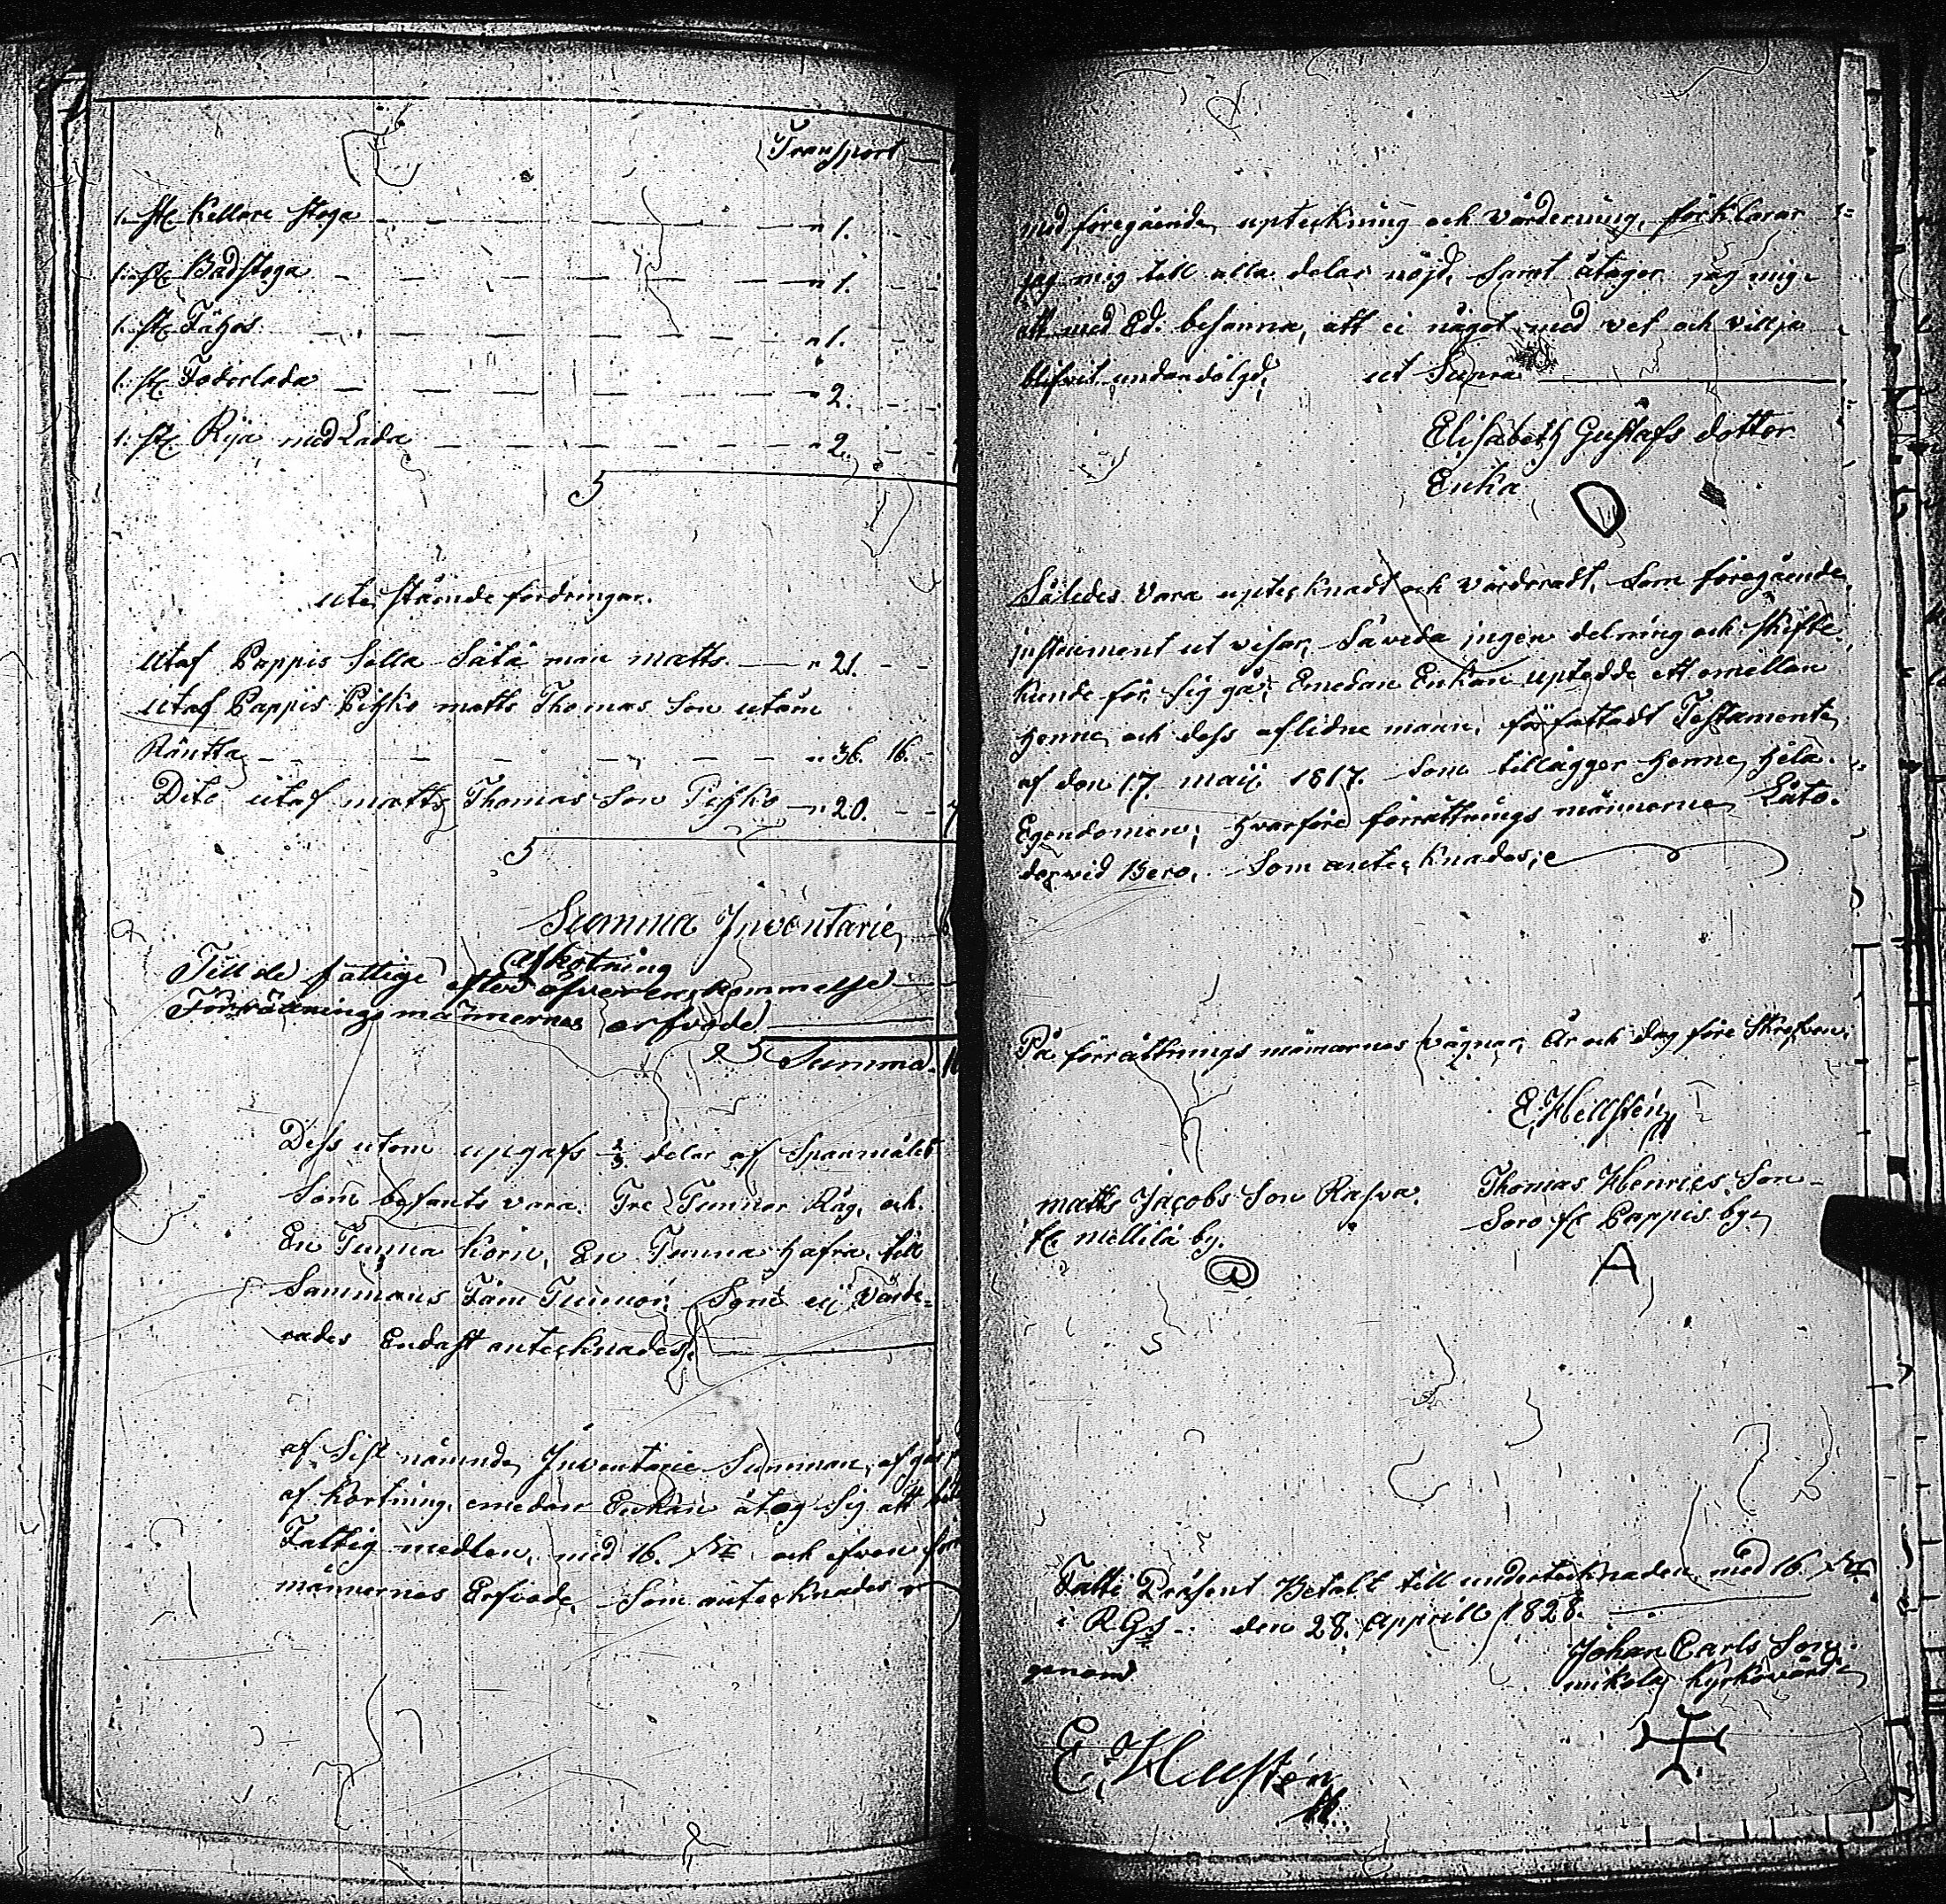 Transport
1. st. Kellare stoga — — " 1.
1. st. Badstoga — — " 1.
1. st. Fähos — — " 1.
1. st. Foderlada — — " 2.
1. st. Rija med Lada — — " 2.
utestående fordringar.
Utaf Pappis Sälla Sätä man matts — " 21.
Utaf Pappis Pihko matts Thomas Son utom
Räntta — — " 36. 16.
Dito utaf matts Thomas Son Pihko — " 20.
Summa Inventarie
Afkotning
Till de fattige efter öfverenskommelse
Förrättnings männernes arfvode
Summa.
Dess utom upgafs 2/3 delar af Spanmålet
Som befants vara Tre Tunnor Råg, och
En Tunna Korn, En Tunna Hafra, till
Sammans Fäm Tunnor, Som ej Värde-
rades Endast antecknades.
af Sist nämnde Inventarie Summan, afgår
af kortning, emedan Enkan åtog Sig att
Fattig medlen, med 16. och efven
männernes Erfvode, Som antecknades
med föregående upteckning och värdering, förklarar
jag mig till alla delar nöjd, Samt åtager jag mig
att med Ed. besanna, att ei något med vet och villja
blifvit undandölgd, ut Supra
Elisabeth Gustafs dotter
Enka
Således vara uptecknadt och värderadt, Som föregående
instrument ut visar, Såvida ingen delning och skifte
kunde för sig gå, Emedan Enkan uptedde ett emellan
Henne och dess aflidne mann, författadt Testamente
af den 17. maij 1817. Som tillägger Henne Hela
Egendomen; Hvarföre förrättnings männerne Läto
dervid Bero, Som antecknades;
På förrättnings männernes vägnar, År och dag före Skrefven.
E. Hellstén
matts Jacobs Son Rasva
fr. mellilä by.
@
Thomas Henrics Son
Soro fr. Pappis by
A
Fatti Präsent Betalt till undertecknaden, med 16.
i R.Gs den 28. Apprill 1828.
genom
Johan Carls Son
mikola kyrkovärd
E. Hellstén